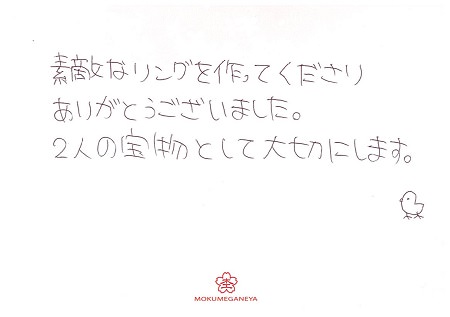 素敵なリングを作ってくださり
ありがとうございました。
2人の宝物として大切にします。
MOKUMEGANEYA